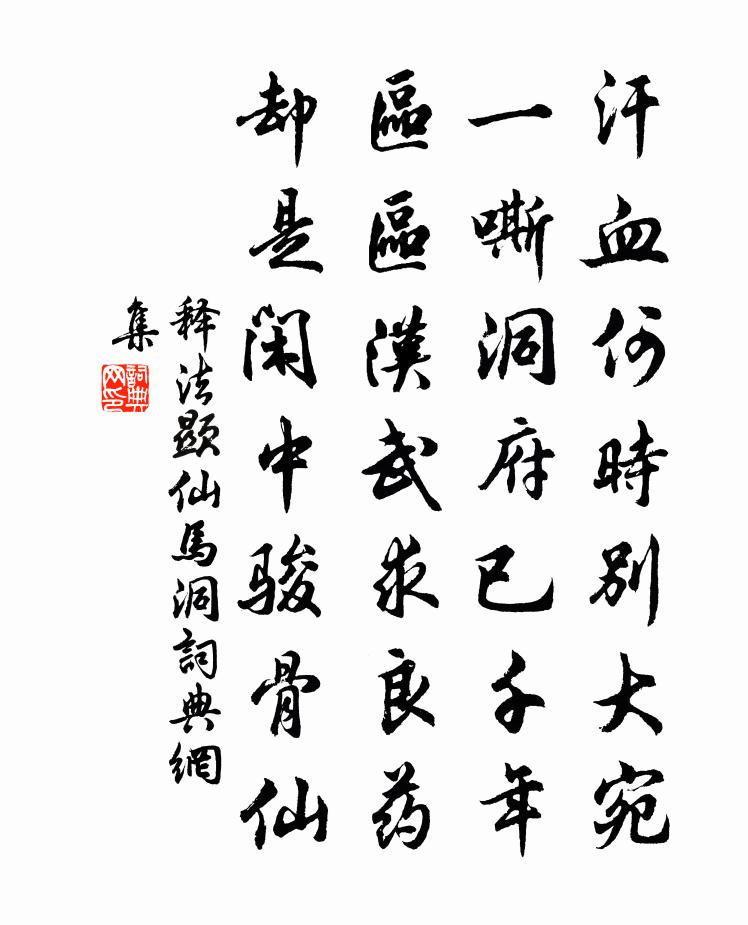 汗血何時別大宛
一嘶洞府已千年
區區漢武求良药
却是闲中骏骨仙
释法顯仙馬洞詞典網
集
詞典网印